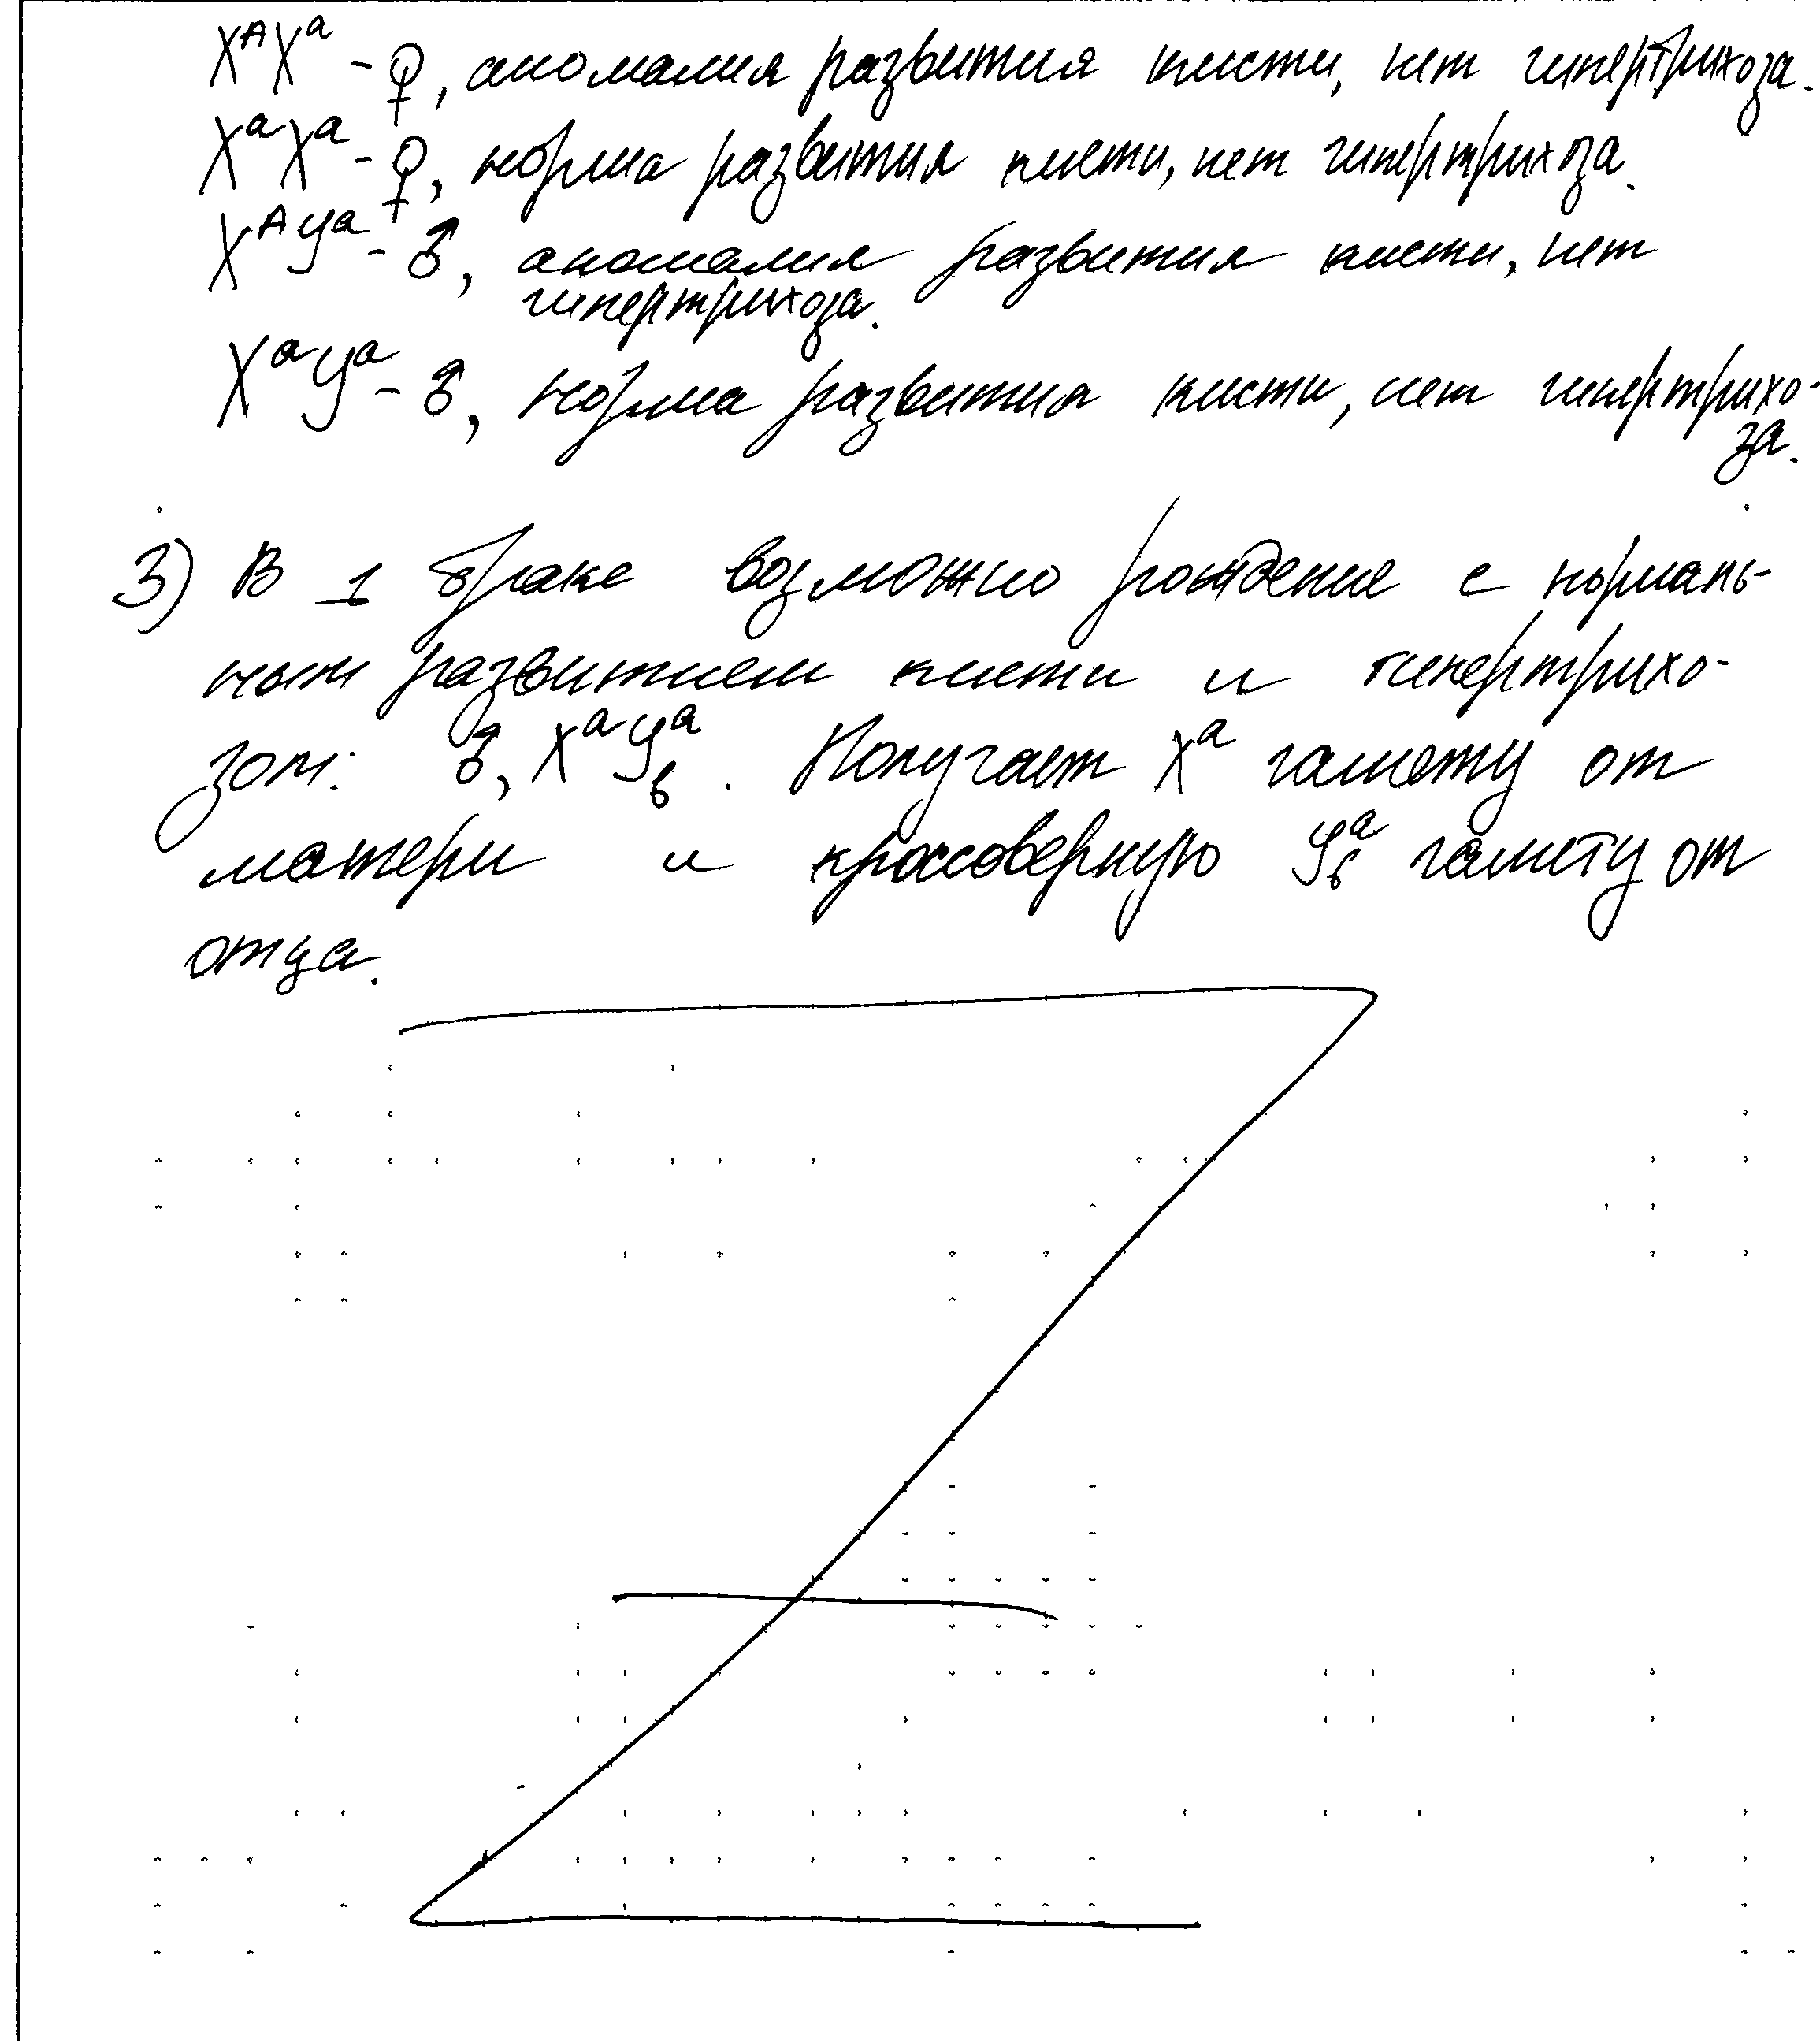 XᴬXᵃ - ♀, аномалия развития кисти, нет гипертрихоза.
XᵃXᵃ - ♀, норма развития кисти, нет гипертрихоза.
XᴬYᵃ - ♂, аномалия развития кисти, нет
гипертрихоза.
XᵃYᵃ - ♂, норма развития кисти, нет гипертрихо-
за.
3) В 1 браке возможно рождение с нормаль-
ным развитием кисти и гипертрихо-
зом: ♂, XᵃYᵃb. Получает Xᵃ гамету от
матери и кроссоверную Yᵃb гамету от
отца.